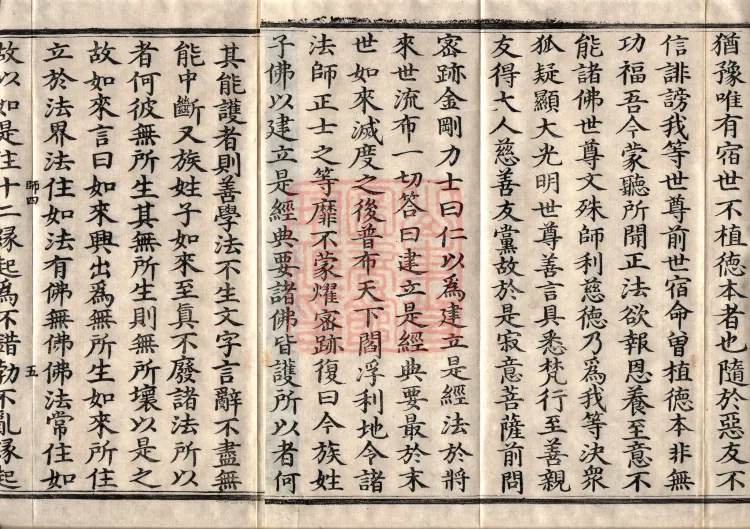 猶豫唯有宿世不植德本者也隨於惡友不
信誹謗我等世尊前世宿命曽植德本非無
功福吾今蒙聽所開正法欲報恩養至意不
能諸佛世尊文殊師利慈德乃為我等決衆
狐疑顯大光明世尊善言具悉梵行至善親
友得大人慈善友黨故於是寂意菩薩前問
密跡金剛力士曰仁以為建立是經法於將
來世流布一切答曰建立是經典要最於末
世如來滅度之後普布天下閻浮利地令諸
法師正士之等靡不蒙耀密跡復曰今族姓
子佛以建立是經典要諸佛皆護所以者何
其能護者則善學法不生文字言辭不盡無
能中斷又族姓子如來至真不廢諸法所以
者何彼無所生其無所生則無所壞以是之
故如來言曰如來興出為無所生如來所住
立於法界法住如法有佛無佛佛法常住如
師四 五
故以如是住十二緣起為不錯勃不亂緣起